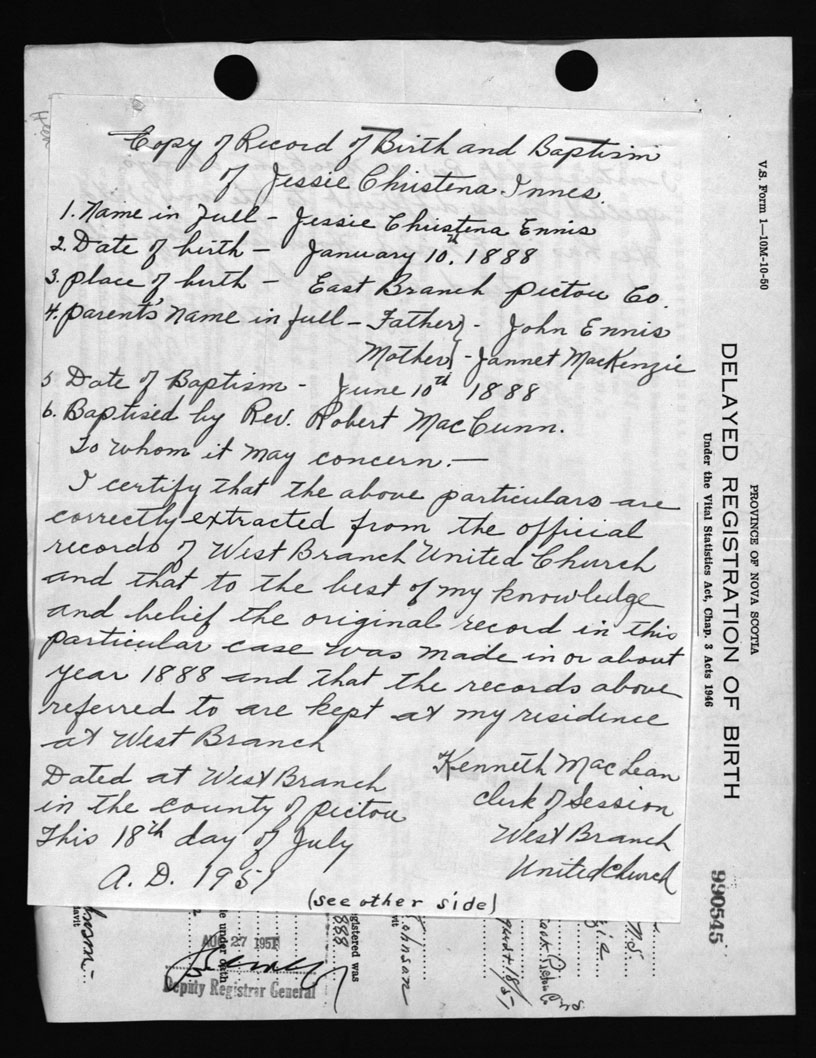 Copy of Record of Birth and Baptism
of Jessie Christena Innes.
1. Name in full - Jessie Christena Ennis
2. Date of birth - January 10th, 1888
3. place of birth - East Branch pictou Co.
4. parent's Name in full - Father} - John Ennis
Mother} - Jannet MacKenzie
5 Date of Baptism - June 10th 1888
6. Baptised by Rev. Robert MacCunn.
To whom it may concern:-
I certify that the above particulars are
correctly extracted from the official
records of West Branch United Church
and that to the best of my knowledge
and belief the original record in this
particular case was made in or about
year 1888 and that the records above
referred to are kept at my residence
at West Branch
Dated at West Branch
in the county of pictou
This 18th day of July
A.D. 1951
Kenneth MacLean
Clerk of Session
West Branch
United Church
(see other side)
V.S. Form 1—10M-10-50
PROVINCE OF NOVA SCOTIA
DELAYED REGISTRATION OF BIRTH
Under the Vital Statistics Act, Chap. 3 Acts 1946
990545
AUG 27 1951
Deputy Registrar General
gistered was
888
N.S.